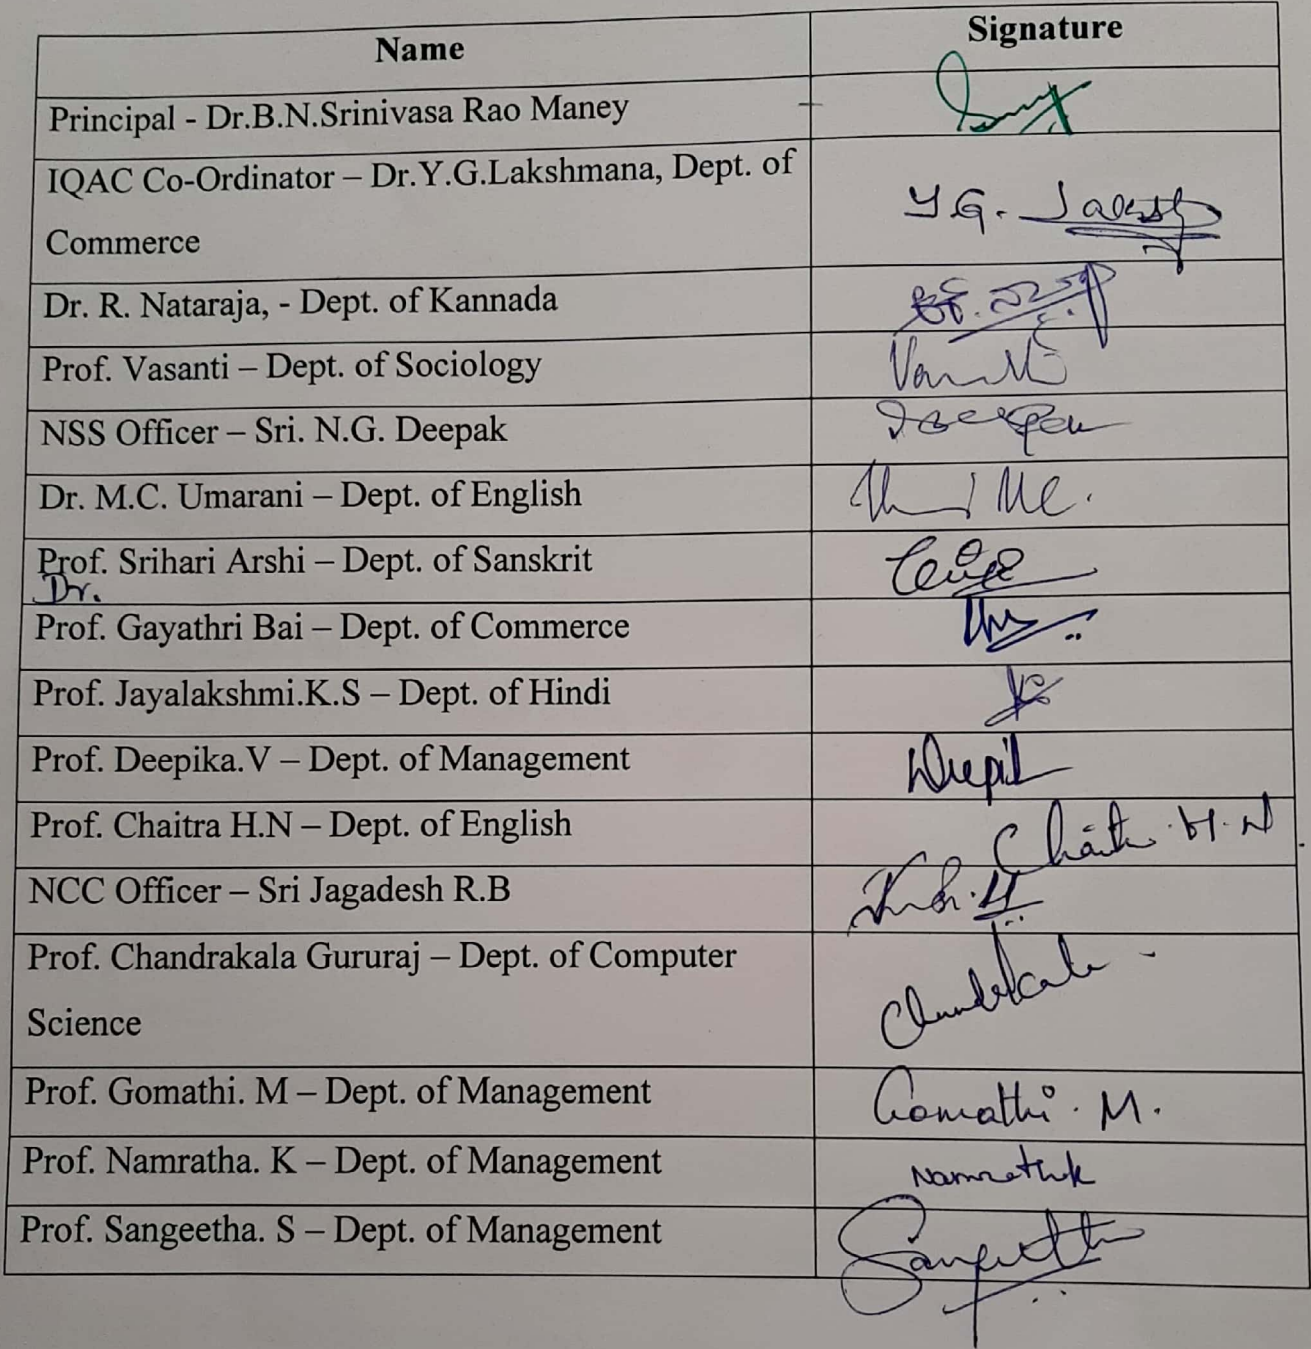 Name Signature
Principal - Dr.B.N.Srinivasa Rao Maney
IQAC Co-Ordinator – Dr.Y.G.Lakshmana, Dept. of
Commerce
Y G.
Dr. R. Nataraja, - Dept. of Kannada
Prof. Vasanti – Dept. of Sociology
NSS Officer – Sri. N.G. Deepak
Dr. M.C. Umarani – Dept. of English
Prof. Srihari Arshi – Dept. of Sanskrit
Dr.
Prof. Gayathri Bai – Dept. of Commerce
Prof. Jayalakshmi.K.S – Dept. of Hindi
Prof. Deepika.V – Dept. of Management
Prof. Chaitra H.N – Dept. of English
H.N
NCC Officer – Sri Jagadesh R.B
Prof. Chandrakala Gururaj – Dept. of Computer
Science
Prof. Gomathi. M – Dept. of Management Gomathi. M.
Prof. Namratha. K – Dept. of Management
Prof. Sangeetha. S – Dept. of Management